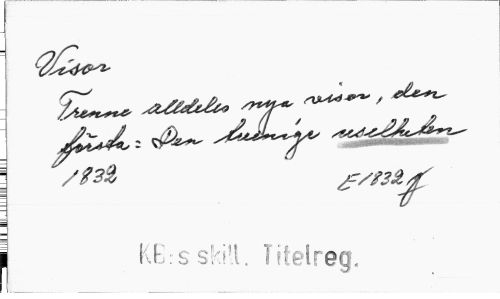 Visor
Trenne alldeles nya visor, den
första: Den tvenige uselheten
1832 E1832 g
KB:s skill. Titelreg.